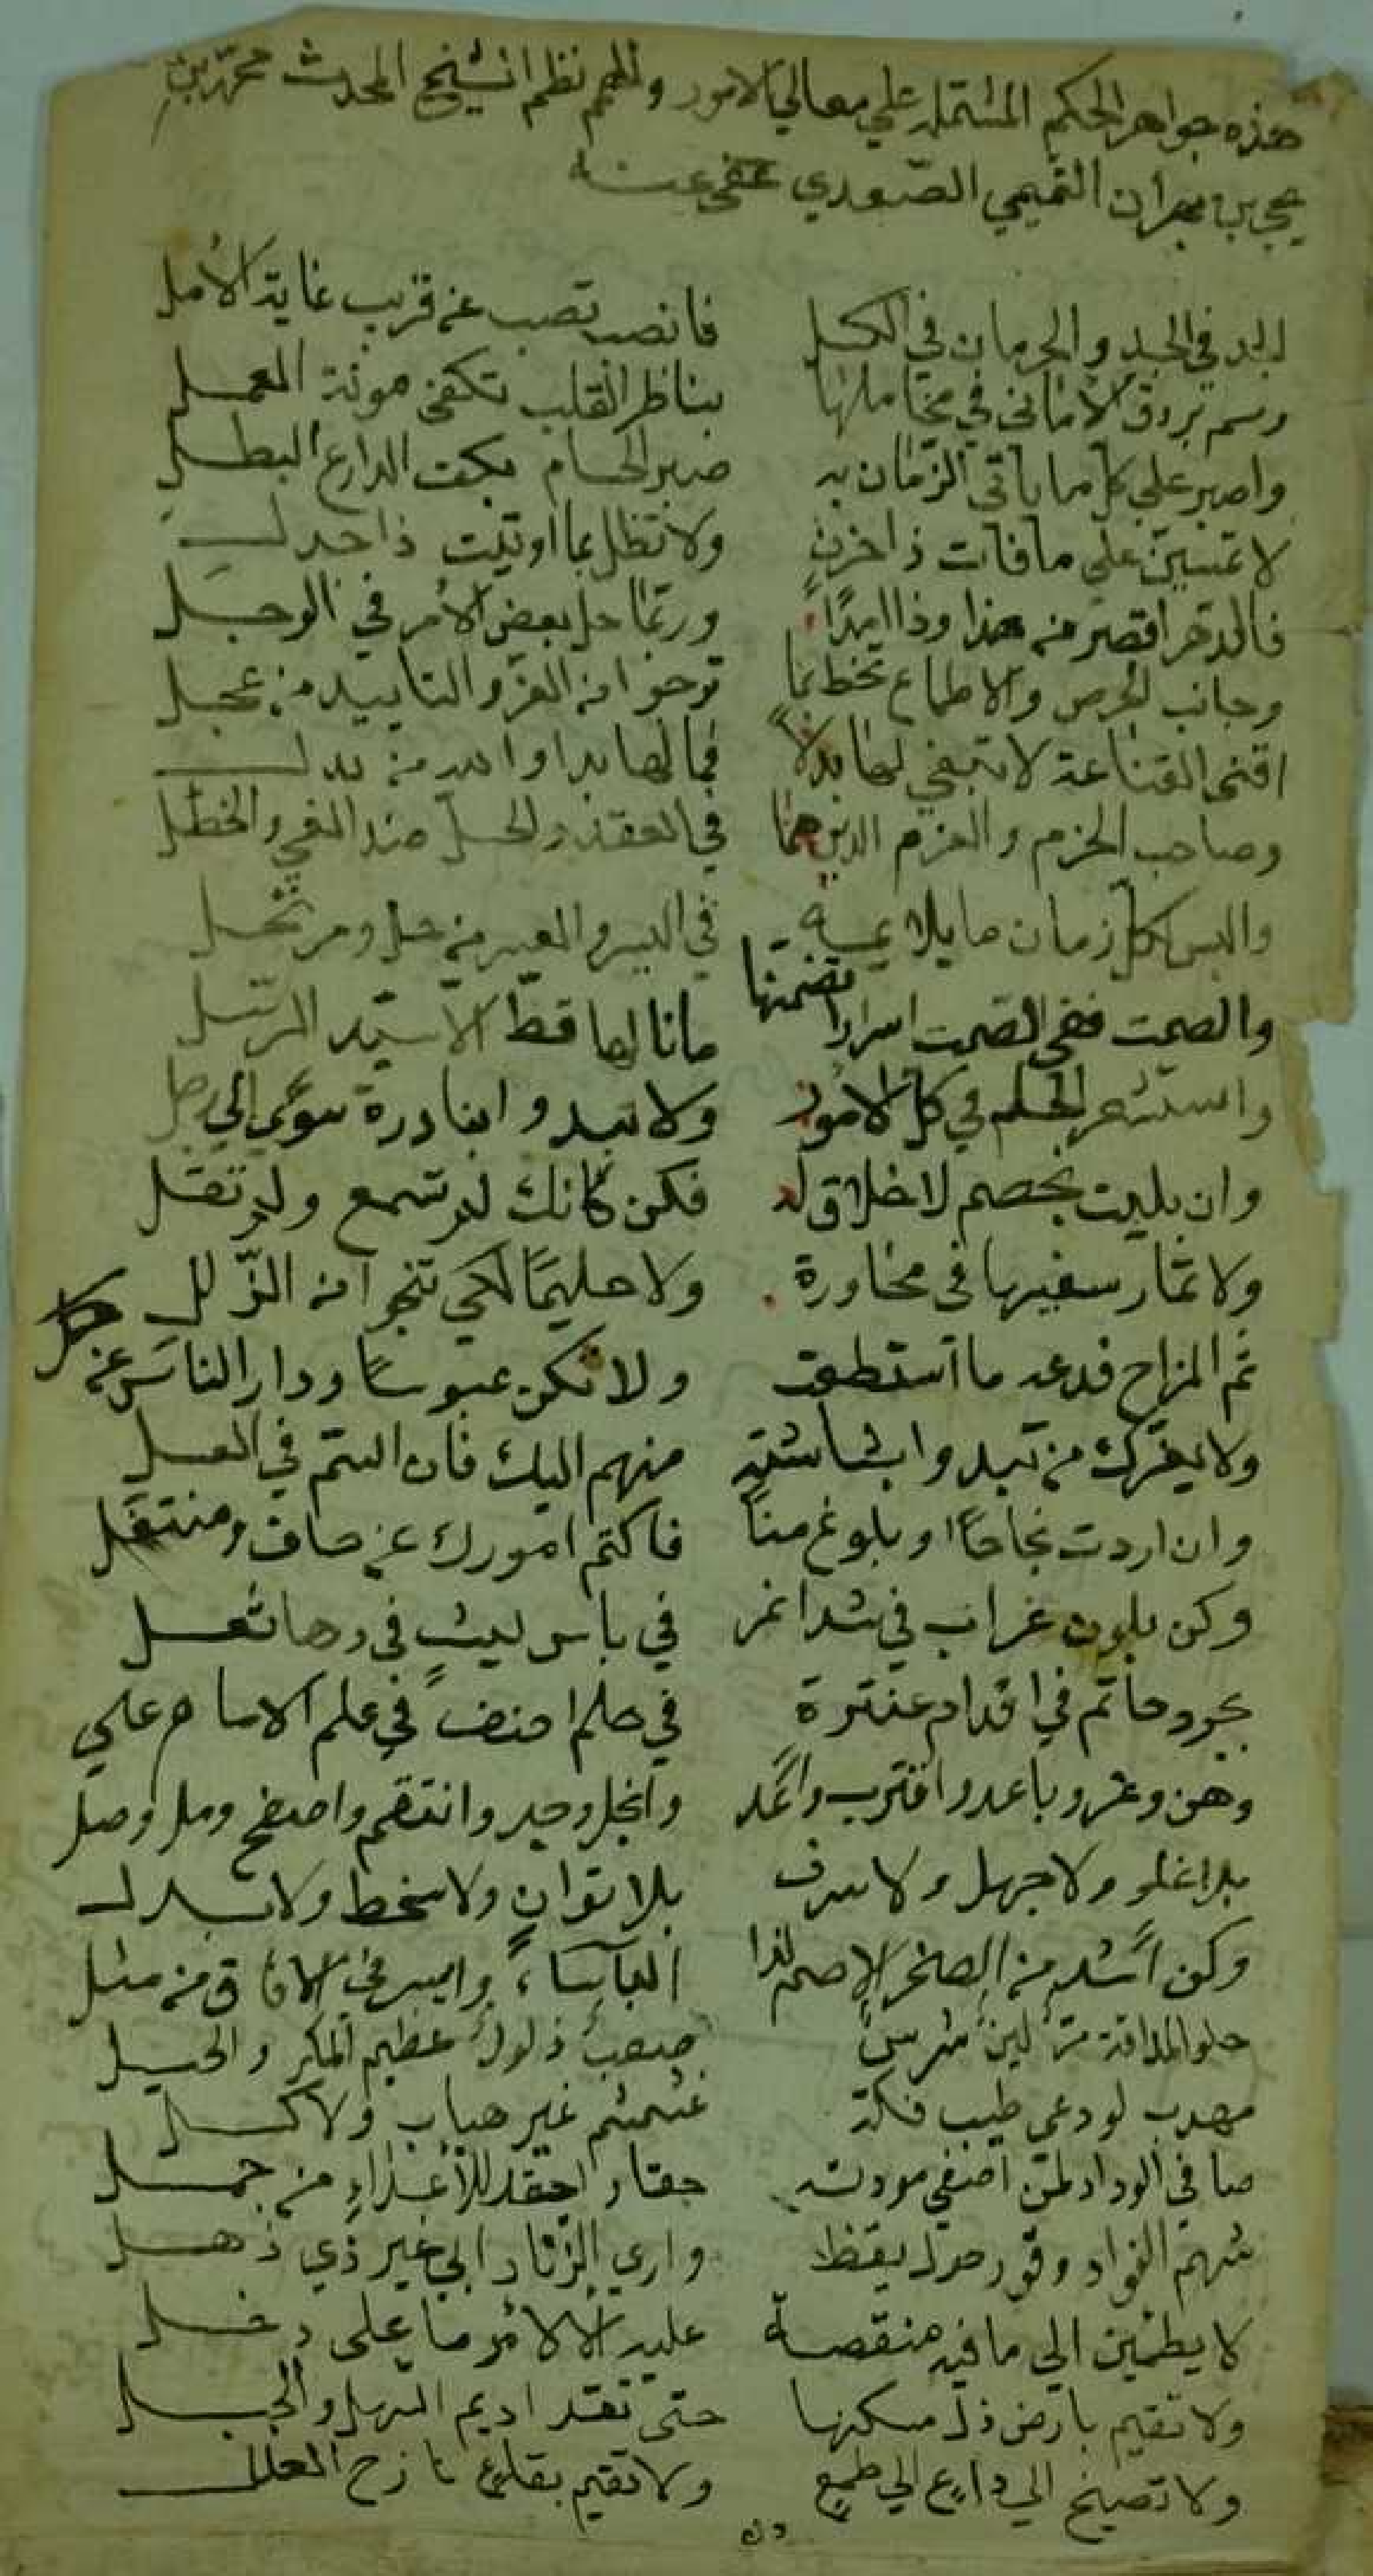 هذه جواهر الحكم المشتمله علي معالي الامور والهمم نظم الشيخ المحدث محمد بن
يحي بن بهران التميمي الصعدي عفي عنه
الجد في الجد والحرمان في الكسل فانصب تصب عن قريب غاية الأمل
وشم بروق الأماني في مخاملها بناظر القلب تكفى مونة العمل
واصبر علي كل ما ياتي الزمان به صبر الحسام بكف الدارع البطل
لا تمسين علي ما فات ذا حزن ولا تظل بما اوتيت ذا جدل
فالدهر اقصر من هذا وذا امدًا وربما حل بعض الأمر في الوجل
وجانب الحرص والاطماع تحظ بما ترجوا من العز والتاييد من عجل
اقنى القناعة لا تبغي لها بدلاً فما لها ابدا والله من بدل
وصاحب الحزم والعزم الذين هما في العقد والحل ضد الغي والخطل
والبس لكل زمان ما يلايمه في اليسر والعسر من حل ومرتحل
والصمت ففي الصمت اسرار تضمنها ما نالها قط الا سيد الرسل
واستشعر الحلم في كل الامور ولا تبد وا بنادرة سوءً الي رجل
وان بليت بخصم لا خلاق له فكن كانك لم تسمع ولم تقل
ولا تمار سفيها في محاورة ولا حليمًا لكي تنجوا من الزلل
ثم المزاح فدعه ما استطعت ولا تكن عبوسًا ودار الناس عن كل
ولا يغرك من تبدوا بشاشته منهم اليك فان السم في العسل
وان اردت نجاحًا او بلوغ منًا فاكتم امورك عن حاف ومنتعل
وكن بلون غراب في شدا نمر في باس ليث في دها ثعل
بجود حاتم في اقدام عنترة في حلم احنف في علم الامام علي
وهن وعز وباعد واقترب وانل وابخل وجد وانتقم واصفح ومل وصل
بلا غلو ولا جهل ولا سرف بلا توان ولا سخط ولا بدل
وكن اشد من الصخر الاصم لذا البأساء وايسر في الافاق من مثل
حلو المذاقة مرٌ لينٌ شرسٌ صعبٌ ذلولٌ عظيم المكر والحيل
مهدب لودعي طيب فكه غشمشم غير هياب ولا كسل
صافي الوداد لمن اصفى مودته حقا واحقد للأعداء من جمل
شهم الفواد وقور حول يقظ واري الزناد ابي غير ذي ذهل
لا يطمئن الي ما فيه منقصة عليه الا لامر ما علي دخل
ولا تقيم بارض ذل مسكنها حتى تقد اديم السهل والجبل
ولا تصيخ الي داع الي طمع ولا تقيم بقاع نازح العلل